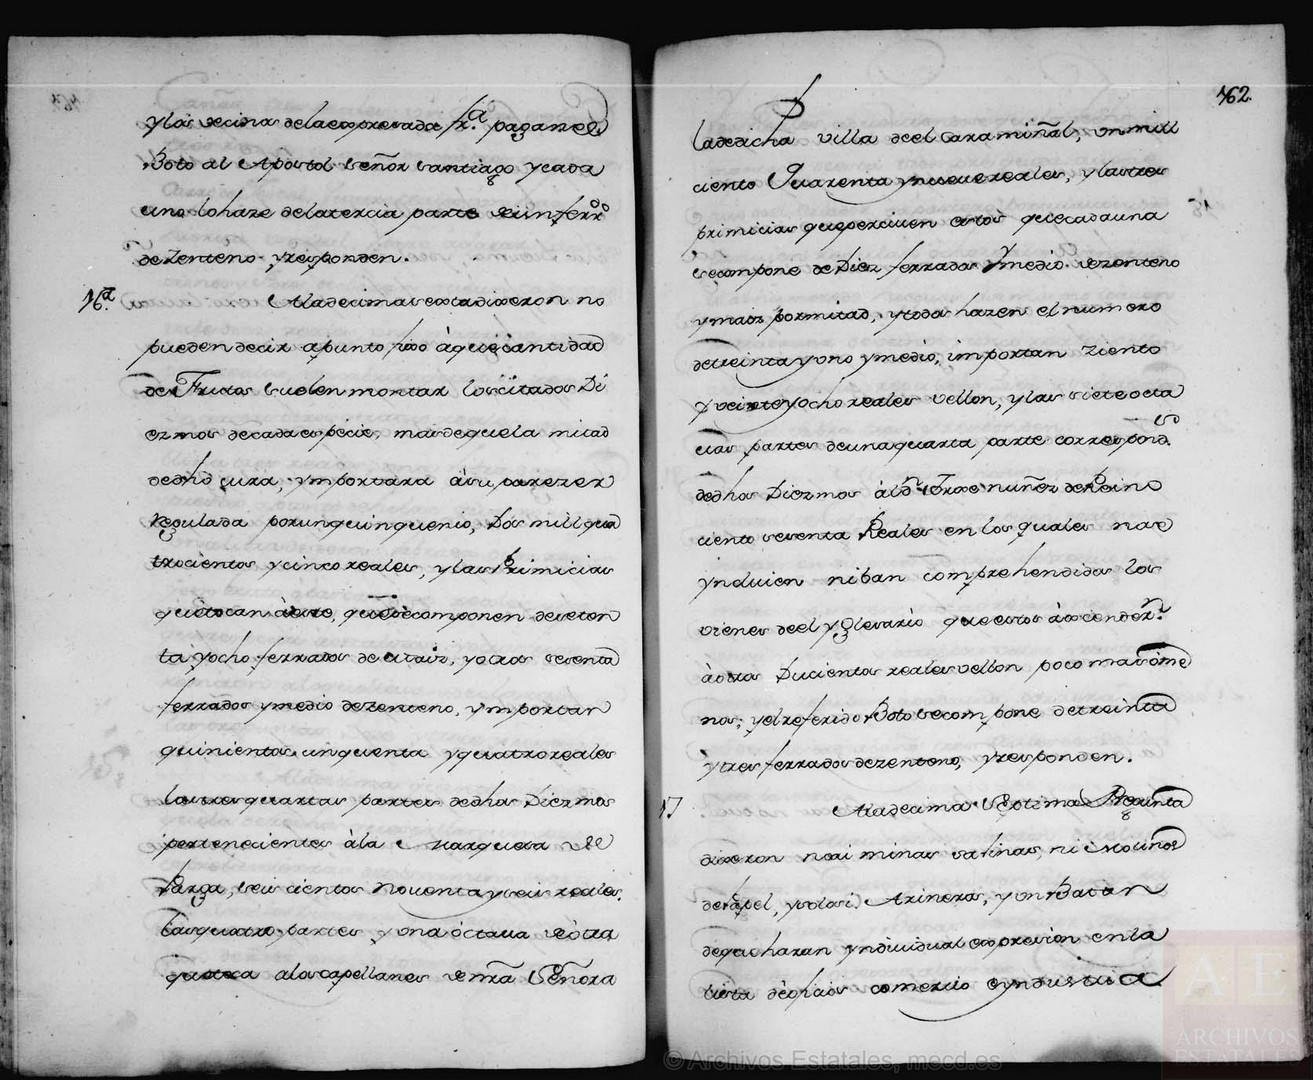 y los vecinos de la expresada fra. pagan el
Boto al Apostol Señor Santiago y cada
uno lo haze de la tercia parte de un ferro
de Zenteno y responden.
16.a A la decima sexta dixeron no
pueden decir a punto fixo à que cantidad
de Frutos suelen montar los citados Di
ezmos de cada especie, mas de que la mitad
de dhã cura, ymportara à su parezer
regulada por un quinquenio, Dos mill qua
trocientos y cinco reales, y las Primicias
que tocan à este, que se componen de seten
ta y ocho ferrados de maiz, y otros sesenta
ferrados y medio de zenteno, ymportan
quinientos cinquenta y quatro reales
las tres quartas partes de dhos Diezmos
pertenecientes à la Marquesa de
Parga, seis cientos noventa y seis reales.
las quatro partes y una octava de otra
quarta a los capellanes de nrã Señora
762.
la de dicha villa de el Caramiñal, un mill
ciento Quarenta y nueve reales, y las tres
primicias que perciven estos que cada una
se compone de Diez ferrados y medio de zenteno
y maiz por mitad, y todas hazen el numero
de treinta y uno y medio, importan Ziento
y veinte y ocho reales vellon, y las siete octa
vas partes de una quarta parte correspond.s
de dhos Diezmos à Dn. Jose nuñez de Reino
ciento sesenta Reales en los quales no se
ynduien ni ban comprehendidos los
vienes de el yglesario que estos àscender.n
à otros Ducientos reales vellon poco mas ò me
nos; y el referido Boto se compone de treinta
y tres ferrados de zenteno, y responden.
17 A la decima Septima Pregunta
dixeron no ai minas salinas, ni Molinos
de Papel, y solo si Arineros, y un Batan
de que haran yndividual expresion en la
lista de oficios comercio e yndustria
© Archivos Estatales, mecd.es
AE
ARCHIVOS
ESTATALES